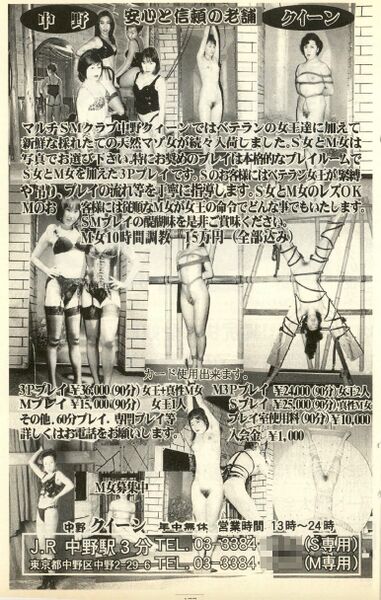 中野 安心と信頼の老舗 クイーン
マルチSMクラブ中野クィーンではベテランの女王達に加えて
新鮮な採れたての天然マゾ女が続々入荷しました。S女とM女は
写真でお選び下さい。特にお奨めのプレイは本格的なプレイルームで
S女とM女を加えた3Pプレイです。Sのお客様にはベテラン女王が緊縛
やり、プレイの流れ等を丁寧に指導します。S女とM女のレズOK
Mのお客様には従順なM女が女王の命令でどんな事でもいたします。
SMプレイの醍醐味を是非ご賞味ください。
M女10時間調教 15万円(全部込み)
カード使用出来ます。
3Pプレイ ¥36,000(90分)女王+真性M女 M3Pプレイ ¥24,000(90分)女王2人
Mプレイ ¥15,000(90分) 女王1人 Sプレイ ¥25,000(90分)真性M女
その他、60分プレイ、専門プレイ等 プレイ室使用料(90分) ¥10,000
詳しくはお電話をお願いします。 入会金 ¥1,000
M女募集中
中野 クイーン 年中無休 営業時間 13時〜24時
J.R 中野駅3分 TEL. 03-3384 (S専用)
東京都中野区中野2-29-6 TEL. 03-3384 (M専用)